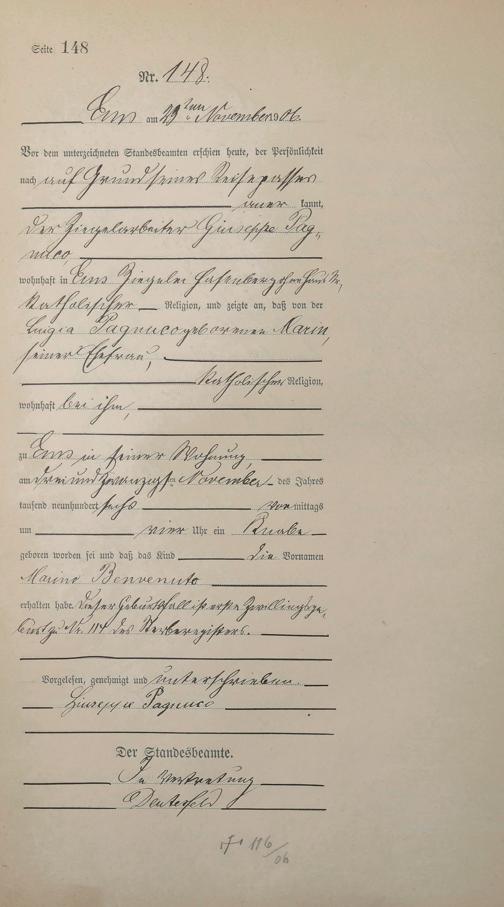 Seite 148
Nr. 148.
Ems am 23ten November 1906.
Vor dem unterzeichneten Standesbeamten erschien heute, der Persönlichkeit
nach auf Grund seines Reisepasses
aner kannt,
der Ziegelarbeiter Giuseppe Pag-
nuco,
wohnhaft in Ems Ziegelei
katholischer Religion, und zeigte an, daß von der
Luigia Pagnuco geborenen Marin,
seiner Ehefrau,
katholischer Religion,
wohnhaft bei ihm,
zu Ems in seiner Wohnung,
am dreiundzwanzigst November des Jahres
tausend neunhundert sechs vormittags
um vier Uhr ein Knabe
geboren worden sei und daß das Kind die Vornamen
Marino Benvenuto
erhalten habe. Dieser Geburtsfall ist erste Zwillingsge-
burt zu Nr. 114 des Sterberegisters.
Vorgelesen, genehmigt und unterschrieben.
Giuseppe Pagnuco
Der Standesbeamte.
In Vertretung
116/06